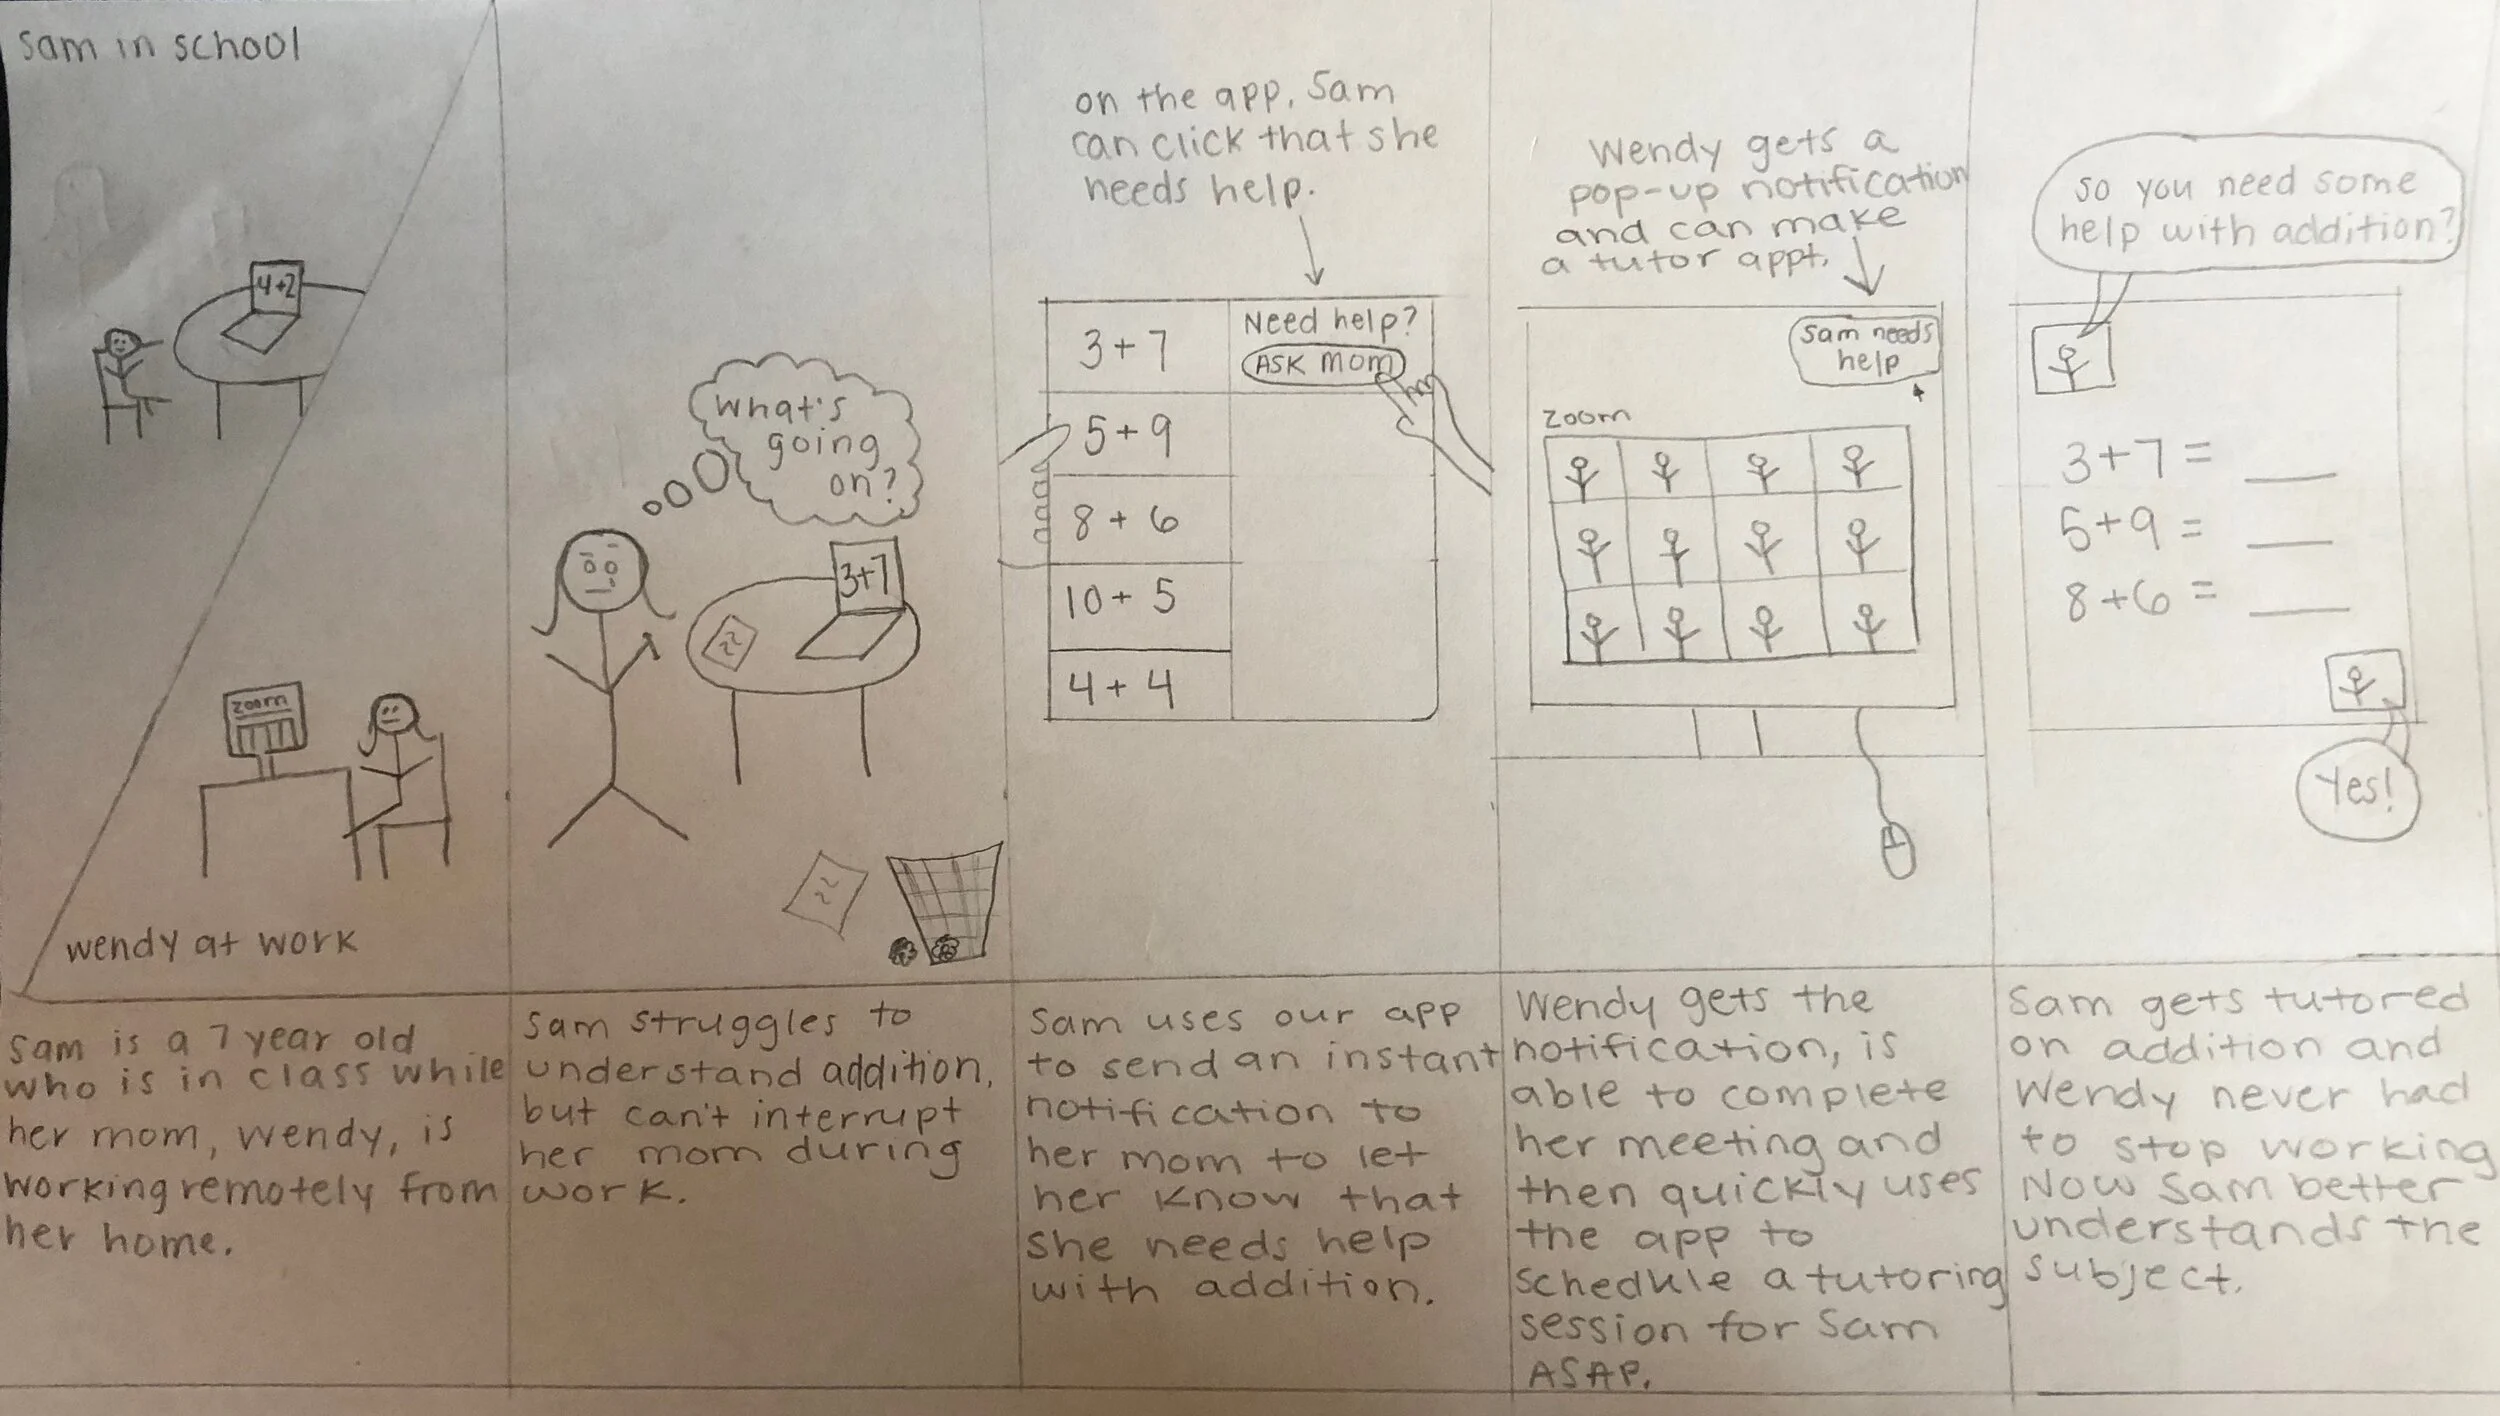 Sam in school
4+2
zoom
wendy at work
Sam is a 7 year old
who is in class while
her mom, wendy, is
working remotely from
her home.
What's
going
on?
3+7
Sam struggles to
understand addition,
but can't interrupt
her mom during
work.
on the app, Sam
can click that she
needs help.
3+7
Need help?
ASK mom
5+9
8+6
10+5
4+4
Sam uses our app
to send an instant
notification to
her mom to let
her know that
she needs help
with addition.
Wendy gets a
pop-up notification
and can make
a tutor appt.
Sam needs
help
zoom
Wendy gets the
notification, is
able to complete
her meeting and
then quickly uses
the app to
schedule a tutoring
session for Sam
ASAP.
So you need some
help with addition?
3+7=
5+9=
8+6=
Yes!
Sam gets tutored
on addition and
Wendy never had
to stop working
Now Sam better
understands the
subject.